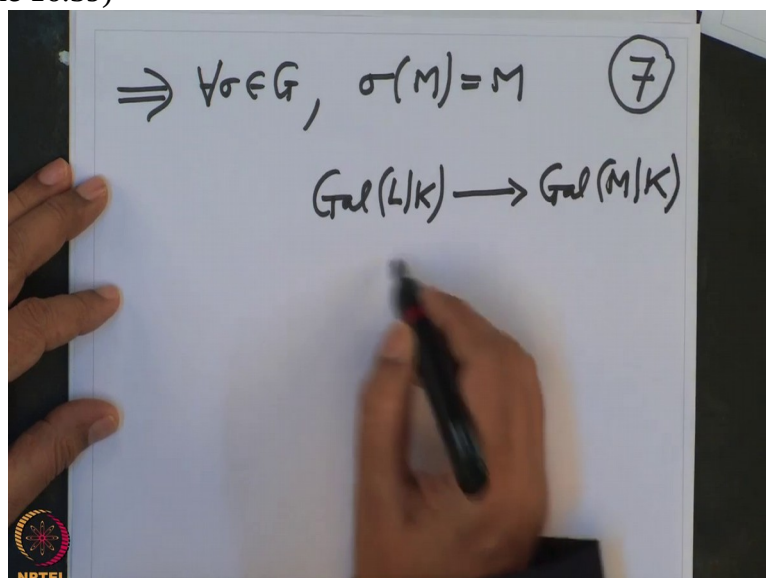 ⇒ ∀σ∈G, σ(M)=M ⑦
Gal(L|K) ⟶ Gal(M|K)
NPTEL